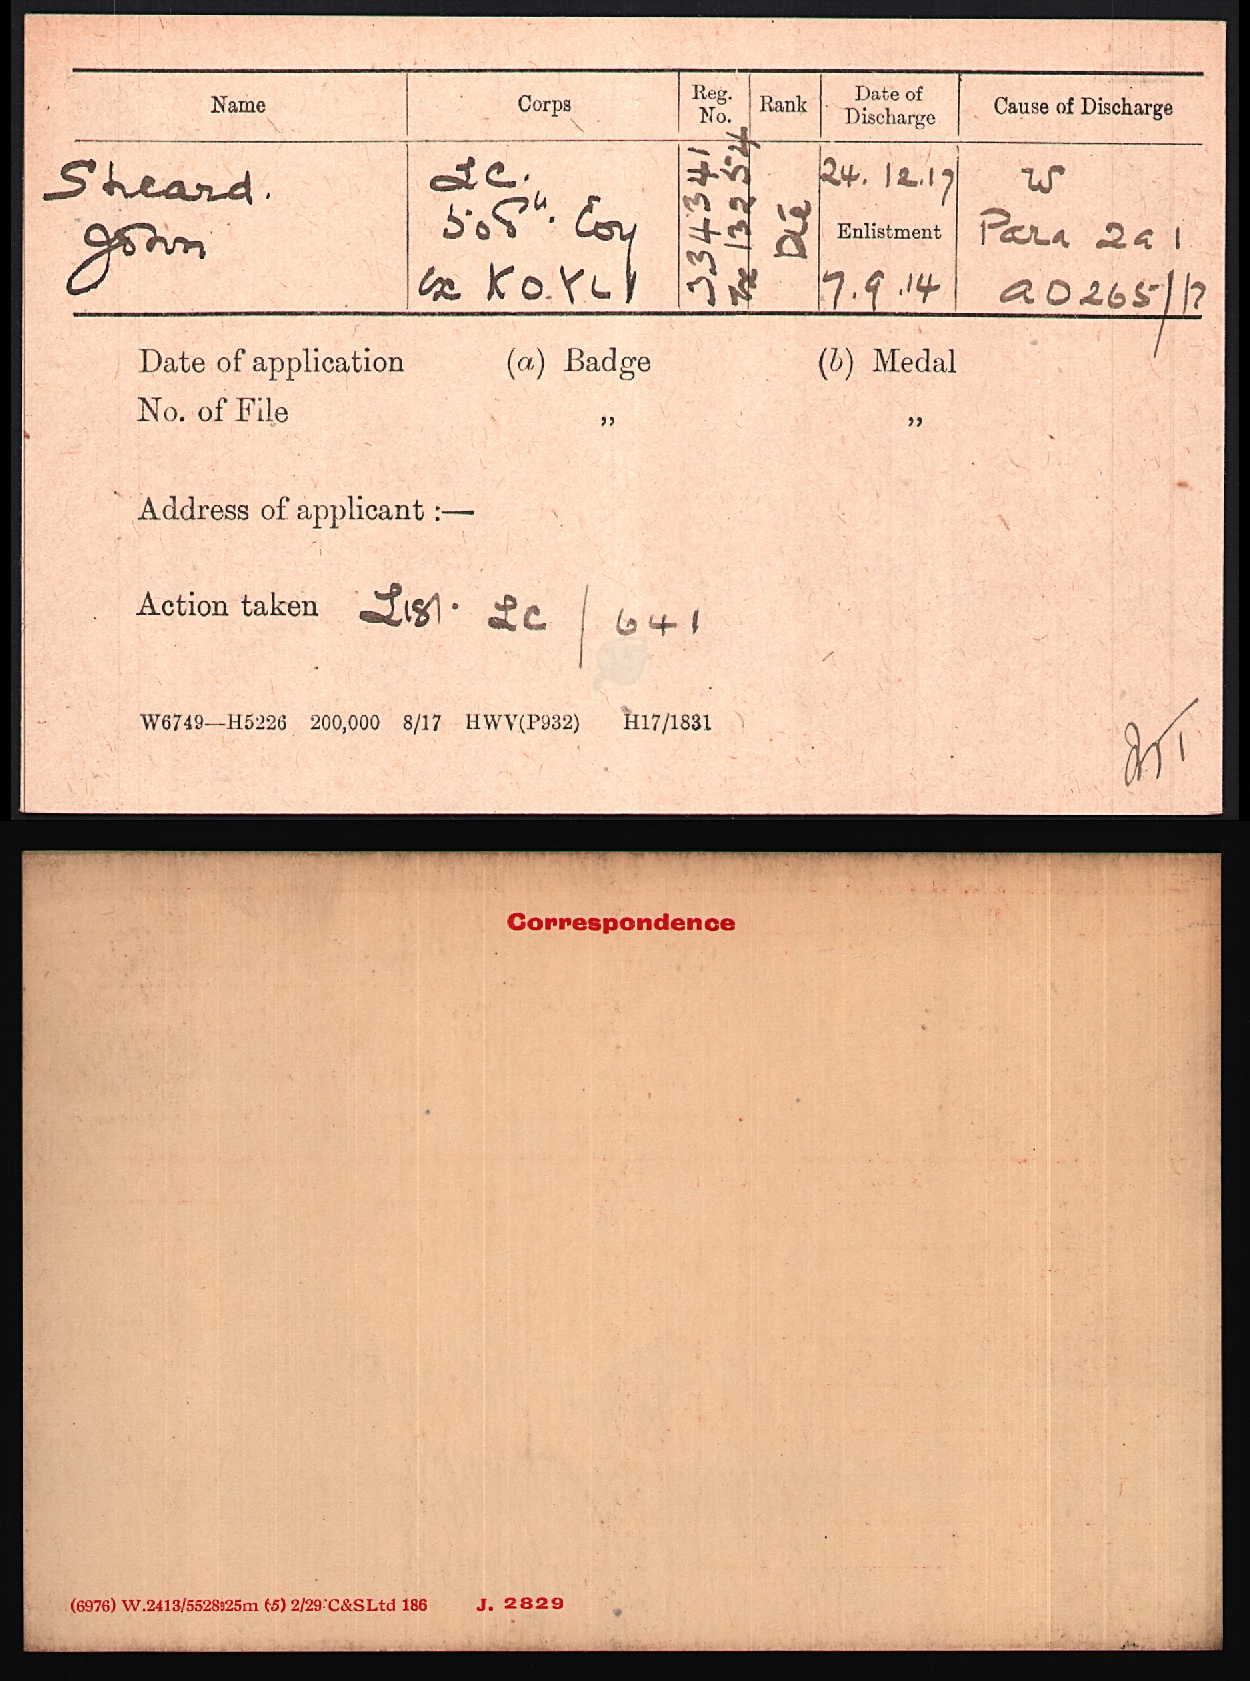 Name Corps Reg. No. Rank Date of Discharge Cause of Discharge
Sheard. L C. 334341 24. 12. 17 W
John 508th. Coy Ex 13254 Pte Enlistment Para 2 a 1
Ex K O. Y L I 7. 9. 14 A O 265/17
Date of application (a) Badge (b) Medal
No. of File „ „
Address of applicant :—
Action taken List. L C / 641
W6749—H5226 200,000 8/17 HWV(P932) H17/1831
Correspondence
(6976) W.2413/5528 25m (5) 2/29 C&S Ltd 186 J. 2829